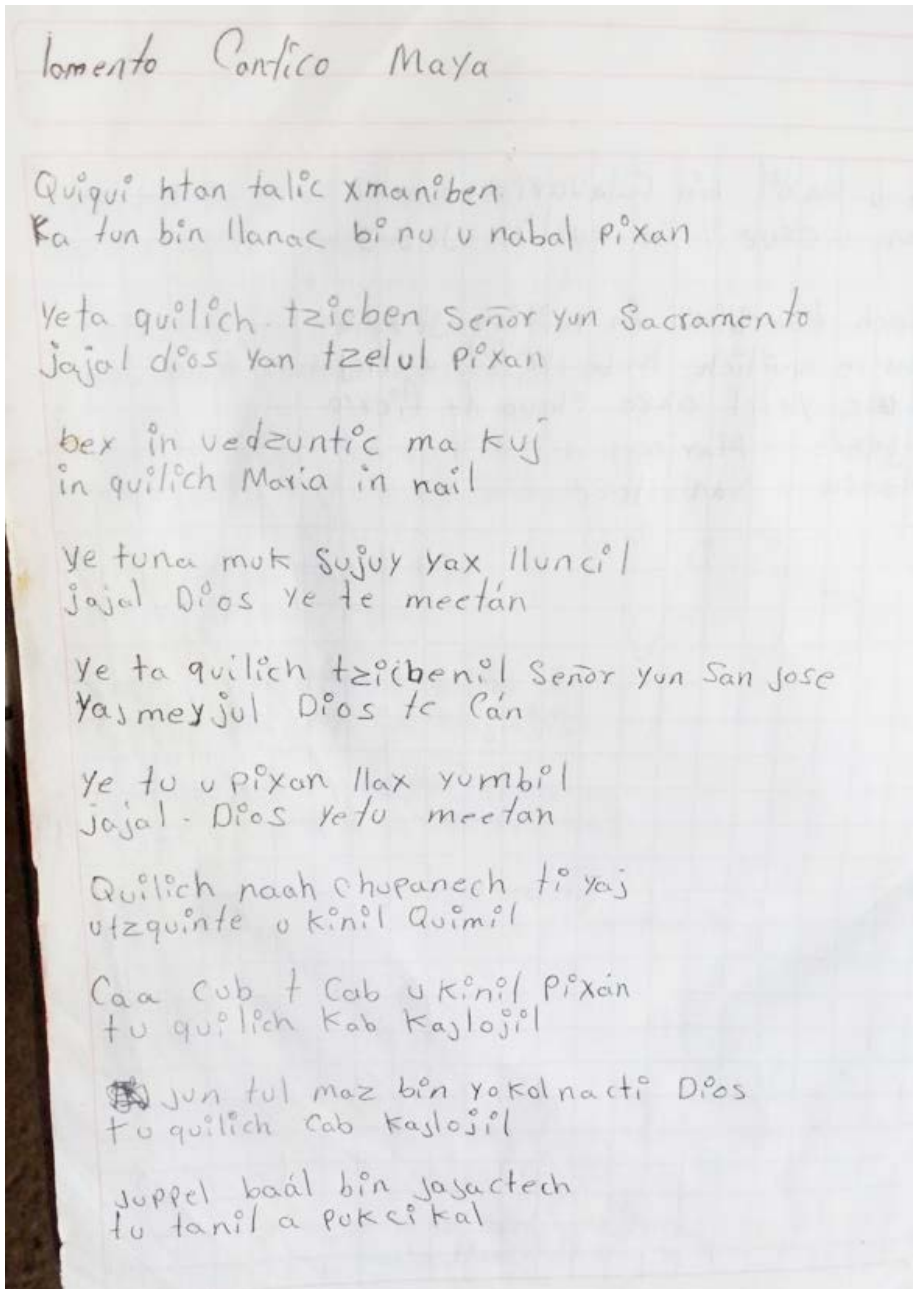 lamento Cantico Maya
Quiqui htan talic xmaniben
Ka tun bin llanac bi nu u nabal pixan
Yeta quilich tzicben Señor yun Sacramento
jajal dios yan tzelul pixan
bex in vedzuntic ma kuj
in quilich Maria in nail
Ye tuna muk Sujuy yax lluncil
jajal Dios ye te meetán
Ye ta quilich tzicbenil Señor yun San Jose
Yajmeyjul Dios te Cán
Ye tu u pixan llax yumbil
jajal - Dios Yetu meetan
Quilich naah chupanech ti yaj
utzquinte u kinil Quimil
Caa Cub t Cab u kinil Pixán
tu quilich Kab Kajlojil
jun tul maz bin yokolnacti Dios
tu quilich Cab Kajlojil
juppel baál bin jajactech
tu tanil a pukcikal